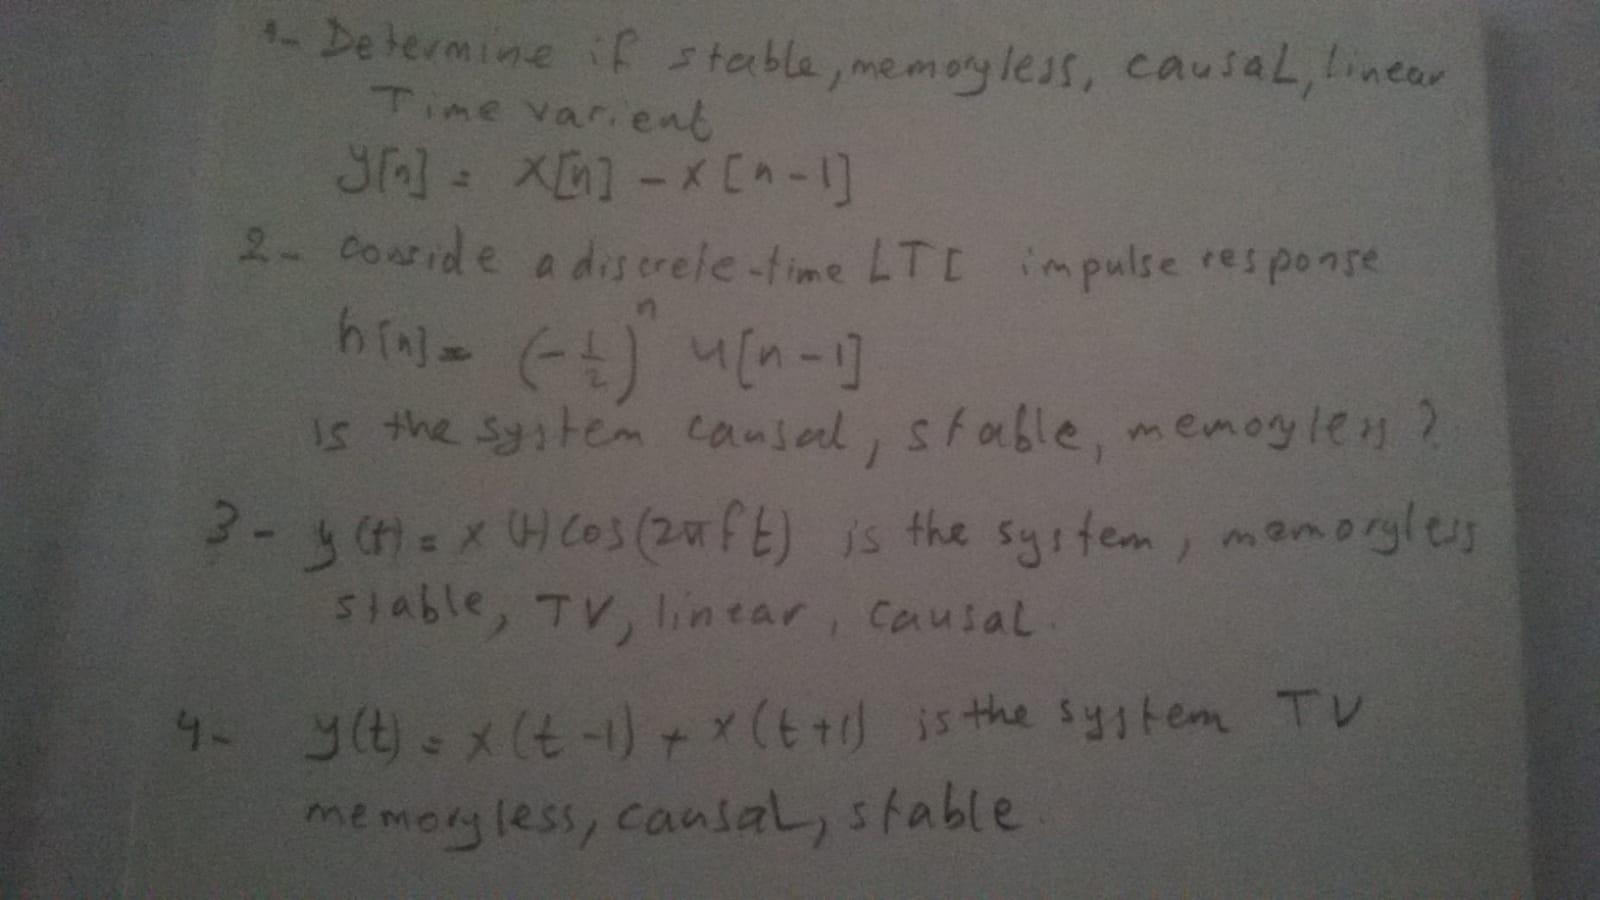 1- Determine if stable, memoryless, causal, linear
Time varient
y[n] = x[n] - x[n-1]
2- conside a discrete-time LTI impulse response
h[n] = (-1/2)^n u[n-1]
is the system causal, stable, memoryless?
3- y(t) = x(t) cos(2πft) is the system, memoryless
stable, TV, linear, causal.
4- y(t) = x(t-1) + x(t+1) is the system TV
memoryless, causal, stable.